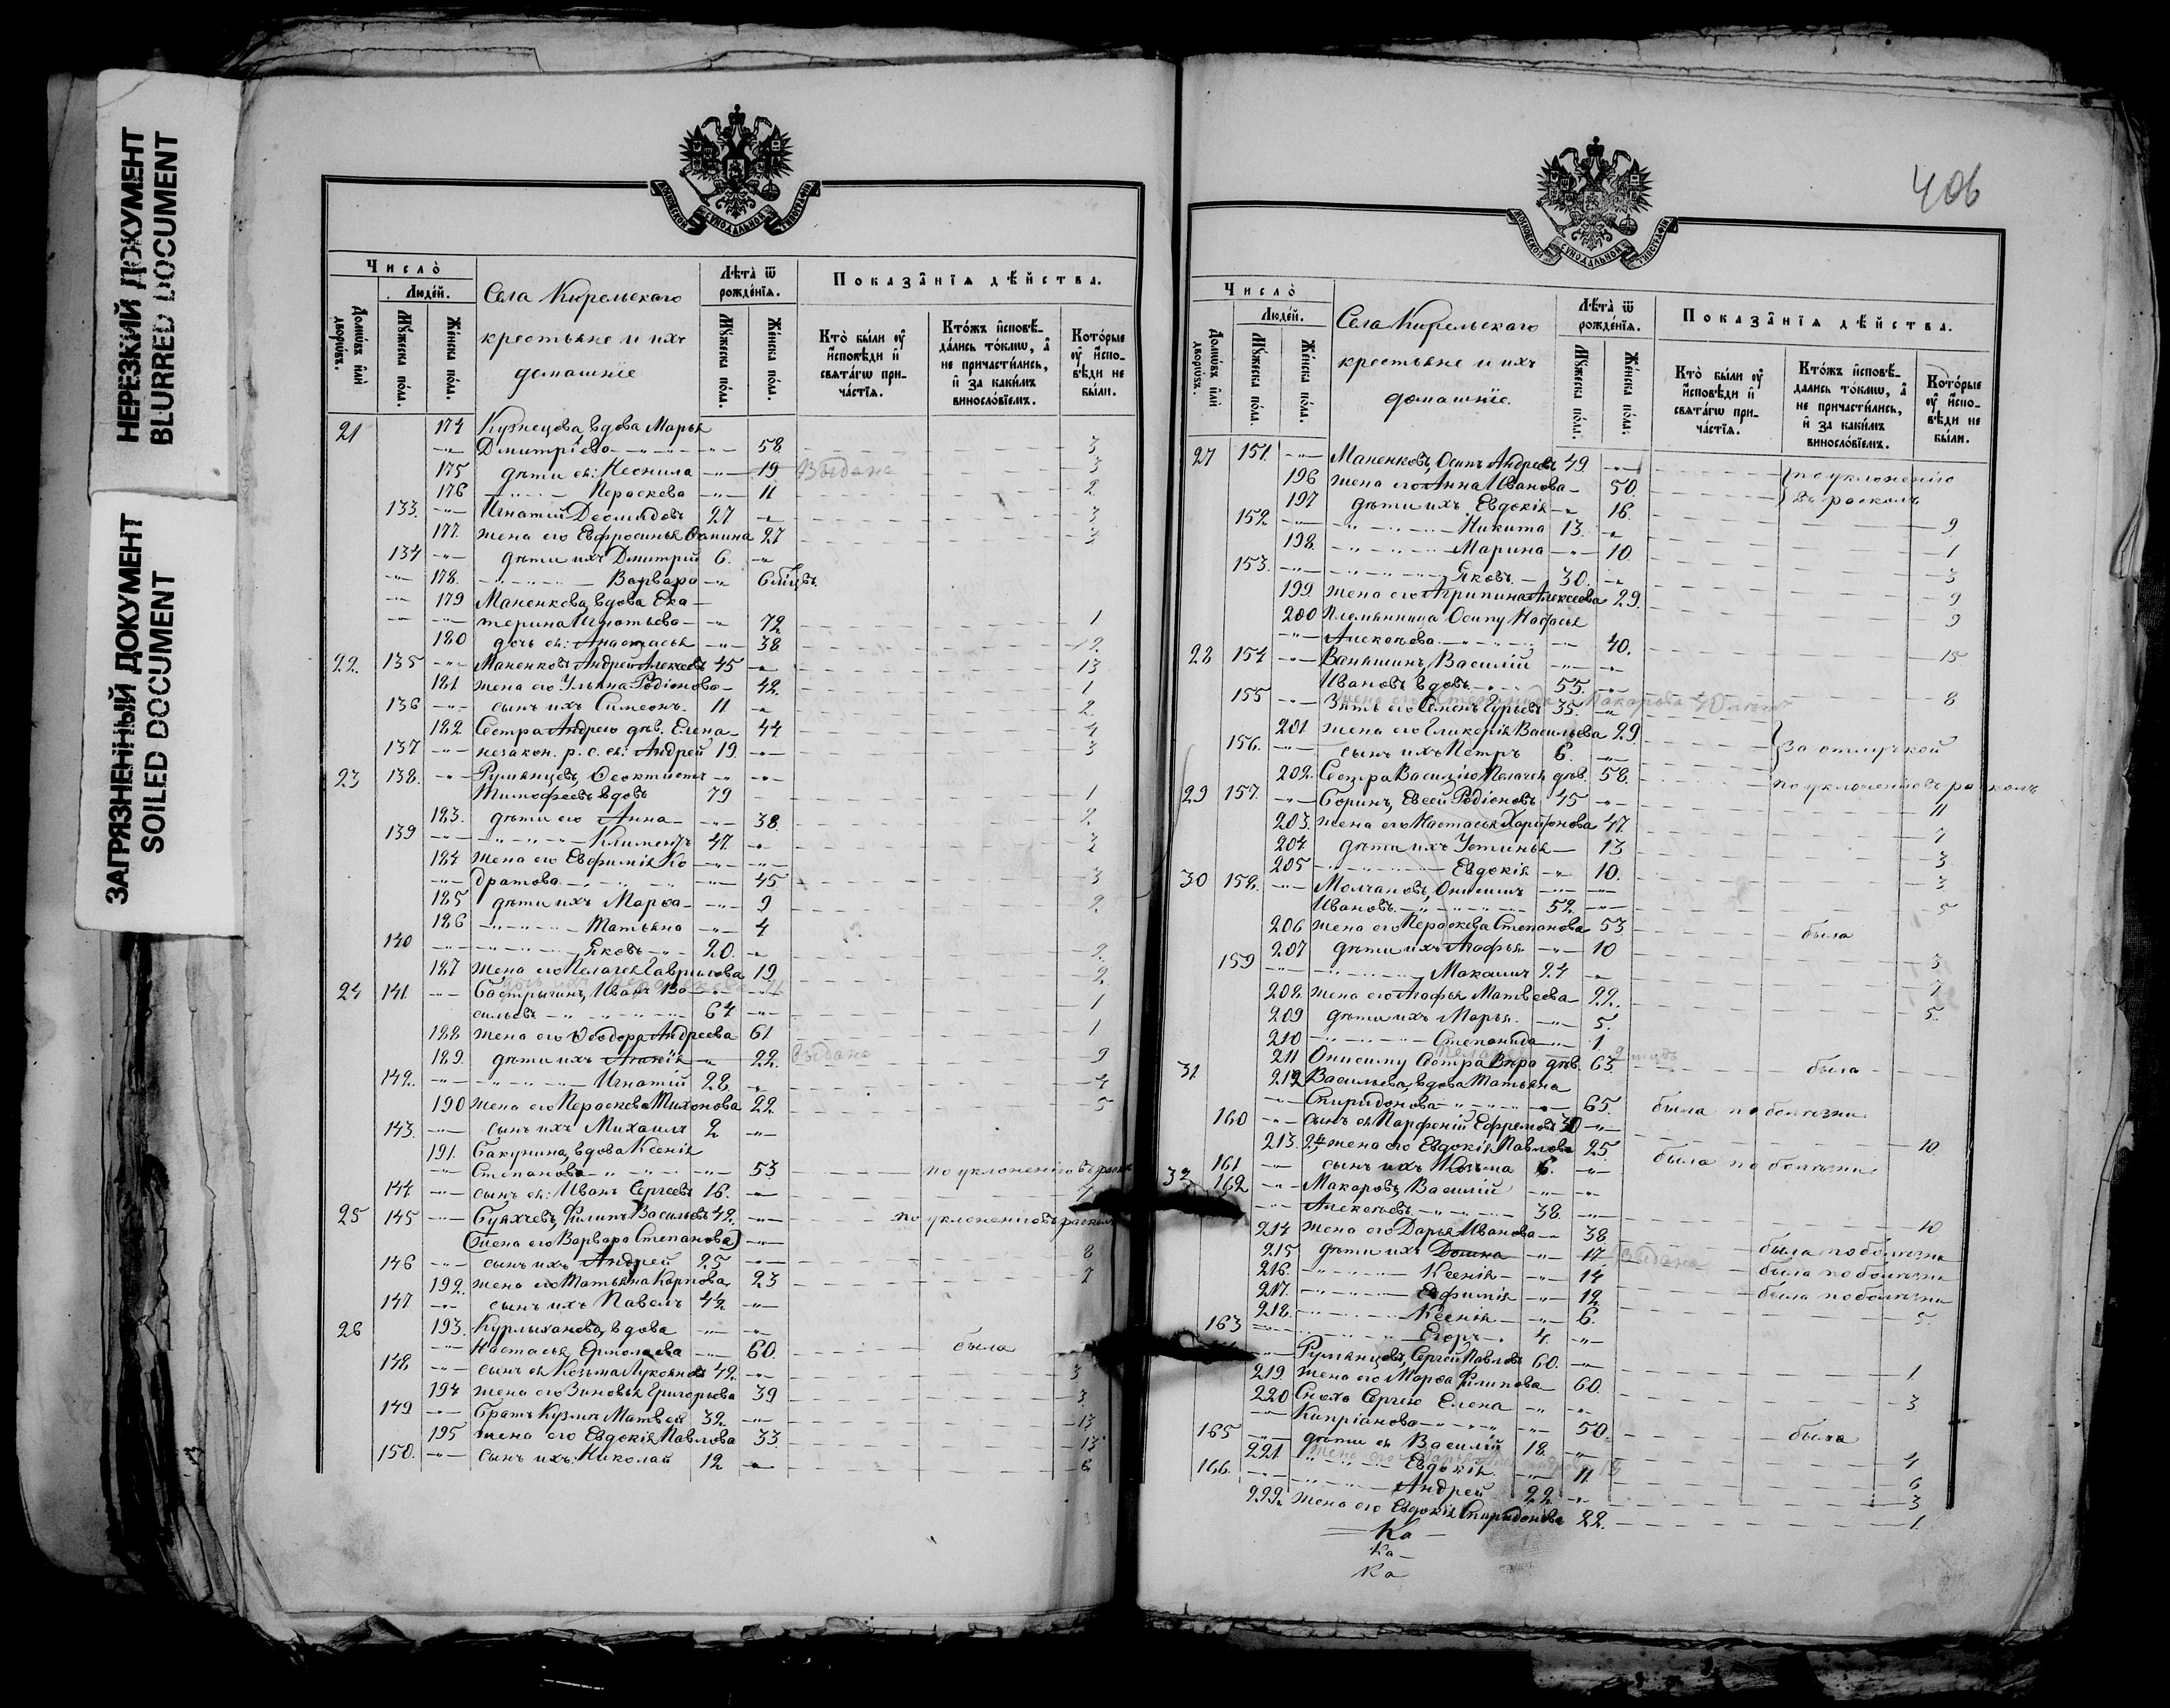 НЕРЕЗКИЙ ДОКУМЕНТ
BLURRED DOCUMENT
ЗАГРЯЗНЕННЫЙ ДОКУМЕНТ
SOILED DOCUMENT
МОСКОВСКОЙ СѴНОДАЛЬНОЙ ТИПОГРАФІИ
Число̀
Людей.
Домѡвъ и҆лѝ дворѡвъ.
Мꙋжеска пола.
Женска пола.
Села Кирельскаго
крестьяне и ихъ
домашніе
Лѣта̀ ѿ рожденїѧ.
Мꙋжеска пола.
Женска пола.
Показанїѧ дѣйства.
Кто̀ были ᲂу҆ и҆сповѣди и҆ свѧтагѡ причастїѧ.
Ктожъ и҆сповѣдались токмѡ, а҆ не причастились, и҆ за какимъ винословїемъ.
Которые ᲂу҆ и҆сповѣди не были.
21 174 Кузнецова, вдова Марья
Дмитріева 58. 3
175 дѣти ея: Неонила 19 Выдана 3
176 Параскева 11 2
133. Игнатій Деомидовъ 27 3
177. жена его Евфросинья Фомина 27 3
134 дѣти ихъ Дмитрій 6.
178. Варвара 6 мѣсяцевъ
179 Маненкова, вдова Ека-
терина Игнатьева 72 1
180 дочь ея: Анастасья 38 12.
22. 135 Маненковъ Андрей Алексеевъ 45 13
181 жена его Ульяна Родіонова 42. 1
136 сынъ ихъ Симеонъ. 11 2.
182 Сестра Андрею дѣв. Елена 44 4
137 незакон. р. с. ея: Андрей 19. 3
23 138. Румянцевъ, Феоктистъ
Тимофеевъ вдовъ 79 1
183. дѣти его Анна 38. 2.
139 Климентъ 47. 3
184 жена его Евфимія Ко
дратова 45 3
185 дѣти ихъ Марфа 9 2.
186 Татьяна 4
140 Яковъ 20. 2.
187 жена его Пелагея Гаврилова 19 2
24 141. Бастрыгинъ, Иванъ Ва
сильевъ 64 1
188 жена его Феодора Андреева 61 1
189. дѣти ихъ Агафія 22. Выдана 9
142. Игнатій 28. 4
190 жена его Параскева Тихонова 22 5
143. сынъ ихъ Михаилъ 2
191. Бакунина, вдова Ксенія
Степанова 53 по уклоненію въ расколъ
144 сынъ ея: Иванъ Сергеевъ 16. 7
25 145 Буяхчевъ, Филипъ Васильевъ 42. по уклоненію въ расколъ
(жена его Варвара Степанова)
146 сынъ ихъ Андрей 25 8
192. жена его Татьяна Карпова 23 2
147 сынъ ихъ Павелъ 4½
26 193. Курлыханова, вдова
Настасья Ермолаева 60. была
148. сынъ ея Козьма Лукояновъ 42. 3
194 жена его Зиновья Григорьева 39 3
149 Братъ Кузмы Матвей 32. 13
195 жена его Евдокія Павлова 33. 13
150. сынъ ихъ: Николай 12 6
406
МОСКОВСКОЙ СѴНОДАЛЬНОЙ ТИПОГРАФІИ
Число̀
Людей.
Домѡвъ и҆лѝ дворѡвъ.
Мꙋжеска пола.
Женска пола.
Села Кирельскаго
крестьяне и ихъ
домашніе.
Лѣта̀ ѿ рожденїѧ.
Мꙋжеска пола.
Женска пола.
Показанїѧ дѣйства.
Кто̀ были ᲂу҆ и҆сповѣди и҆ свѧтагѡ причастїѧ.
Ктожъ и҆сповѣдались токмѡ, а҆ не причастились, и҆ за какимъ винословїемъ.
Которые ᲂу҆ и҆сповѣди не были.
27 151. Маненковъ, Осипъ Андреевъ 49 по уклоненію
196 жена его Анна Иванова 50. въ расколъ
197 дѣти ихъ. Евдокія 16.
152 Никита 13. 9
198. Марина 10. 1
153. Яковъ. 30. 3
199. жена его Агрипина Алексеева 29. 9
200 Племянница Осипу Настасья 9
Алексеева 40.
28 154 Ваняшинъ, Василій 15
Ивановъ вдовъ 55.
155 Зять его Семенъ Гурьевъ 35. 8
201 жена его Гликерія Васильева 29.
156. сынъ ихъ Петръ 6. За отлучкой
202. Сестра Василію Пелагея дѣв. 58.
29 157. Боринъ, Евсей Родіоновъ 45 по уклоненію въ расколъ
203. жена его Настасья Харитонова 47. 11
204. дѣти ихъ Устинья 13 7
205 Евдокія 10. 3
30 158. Молчановъ, Онисимъ 3
Ивановъ 52. 5
206 жена его Параскева Степанова 53
207 дѣти ихъ Агафья 10 была
159 Максимъ 24 3
208. жена его Агафья Матвеева 22. 7
209 дѣти ихъ Марья. 5. 5.
210 Степанида 1
211 Онисиму Сестра Вѣра дѣв. 63.
31. 212 Васильева, вдова Татьяна была
Спиридонова 65.
160 сынъ ея Парфеній Ефремовъ 30 была по болѣзни
213. жена его Евдокія Павлова 25. 10
161 сынъ ихъ Козьма 6. была по болѣзни
32 162 Макаровъ, Василій
Алексеевъ 38.
214 жена его Дарья Иванова 38. 10
215 дѣти ихъ Домна 17 Выдана была по болѣзни
216. Ксенія 14 была по болѣзни
217. Евфимія 12 была по болѣзни
218. Ксенія 6. 5
163 Егоръ 4.
Румянцевъ, Сергей Павловъ 60.
219. жена его Марфа Филипова 60. 1
220 Сноха Сергею Елена 3
Кипріанова 50.
165 дѣти ея Василій 18. была
221 Евдокія. 11 4
166. Андрей 22. 6
222. жена его Евдокія Спиридонова 22. 3
1.
Ка
Ка
Ка